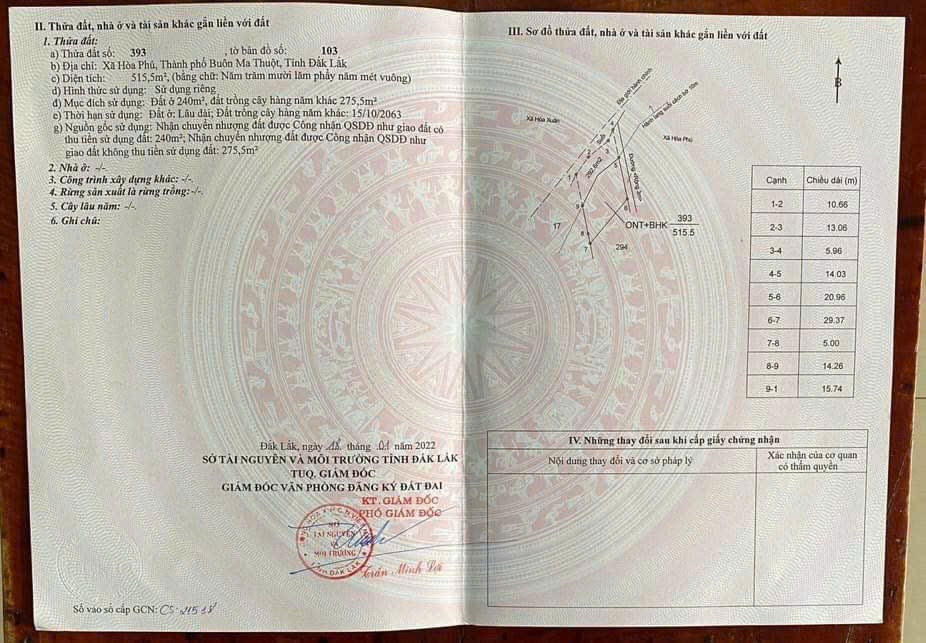 II. Thửa đất, nhà ở và tài sản khác gắn liền với đất
1. Thửa đất:
a) Thửa đất số: 393 , tờ bản đồ số: 103
b) Địa chỉ: Xã Hòa Phú, Thành phố Buôn Ma Thuột, Tỉnh Đắk Lắk
c) Diện tích 515,5m², (bằng chữ: Năm trăm mười lăm phẩy năm mét vuông)
d) Hình thức sử dụng: Sử dụng riêng
đ) Mục đích sử dụng: Đất ở 240m², đất trồng cây hàng năm khác 275,5m²
e) Thời hạn sử dụng: Đất ở: Lâu dài; Đất trồng cây hàng năm khác: 15/10/2063
g) Nguồn gốc sử dụng: Nhận chuyển nhượng đất được Công nhận QSDĐ như giao đất có
thu tiền sử dụng đất: 240m²; Nhận chuyển nhượng đất được Công nhận QSDĐ như
giao đất không thu tiền sử dụng đất: 275,5m²
2. Nhà ở: -/-.
3. Công trình xây dựng khác: -/-.
4. Rừng sản xuất là rừng trồng:-/-.
5. Cây lâu năm: -/-.
6. Ghi chú:
Đắk Lắk, ngày 18 tháng 01 năm 2022
SỞ TÀI NGUYÊN VÀ MÔI TRƯỜNG TỈNH ĐẮK LẮK
TUQ. GIÁM ĐỐC
GIÁM ĐỐC VĂN PHÒNG ĐĂNG KÝ ĐẤT ĐAI
KT. GIÁM ĐỐC
PHÓ GIÁM ĐỐC
SỞ
TÀI NGUYÊN
VÀ
MÔI TRƯỜNG
TỈNH ĐẮK LẮK
Trần Minh Lợi
Số vào sổ cấp GCN:
III. Sơ đồ thửa đất, nhà ở và tài sản khác gắn liền với đất
B
Địa giới hành chính
Hành lang suối cách bờ 10m
Xã Hòa Xuân
Xã Hòa Phú
Suối
Đường
17
294
ONT+BHK 393
515.5
Cạnh Chiều dài (m)
1-2 10.66
2-3 13.06
3-4 5.96
4-5 14.03
5-6 20.96
6-7 29.37
7-8 5.00
8-9 14.26
9-1 15.74
IV. Những thay đổi sau khi cấp giấy chứng nhận
Nội dung thay đổi và cơ sở pháp lý
Xác nhận của cơ quan
có thẩm quyền